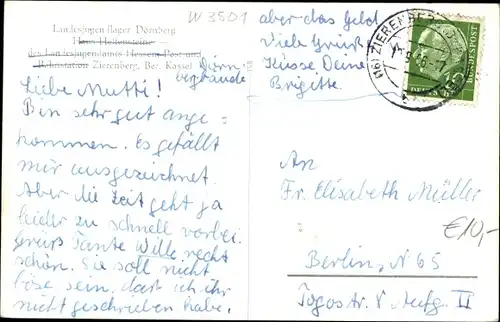 W 3501
Landesjugendlager Dörnberg
Haus Helfensteine
des Landesjugendamtes Hessen, Post und
Bahnstation Zierenberg, Bez. Kassel
Liebe Mutti!
Bin sehr gut ange=
kommen. Es gefällt
mir ausgezeichnet
Aber die Zeit geht ja
leider zu schnell vorbei.
Grüß Tante Wille recht
schön. Sie soll nicht
böse sein, daß ich ihr
nicht geschrieben habe,
aber das Geld
Viele Grüße
Küsse Deine
Brigitte
(16) ZIERENBERG
10
DEUTSCHE BUNDESPOST
An
Fr. Elisabeth Müller
€10,-
Berlin, N 65
Togostr. Aufg. II